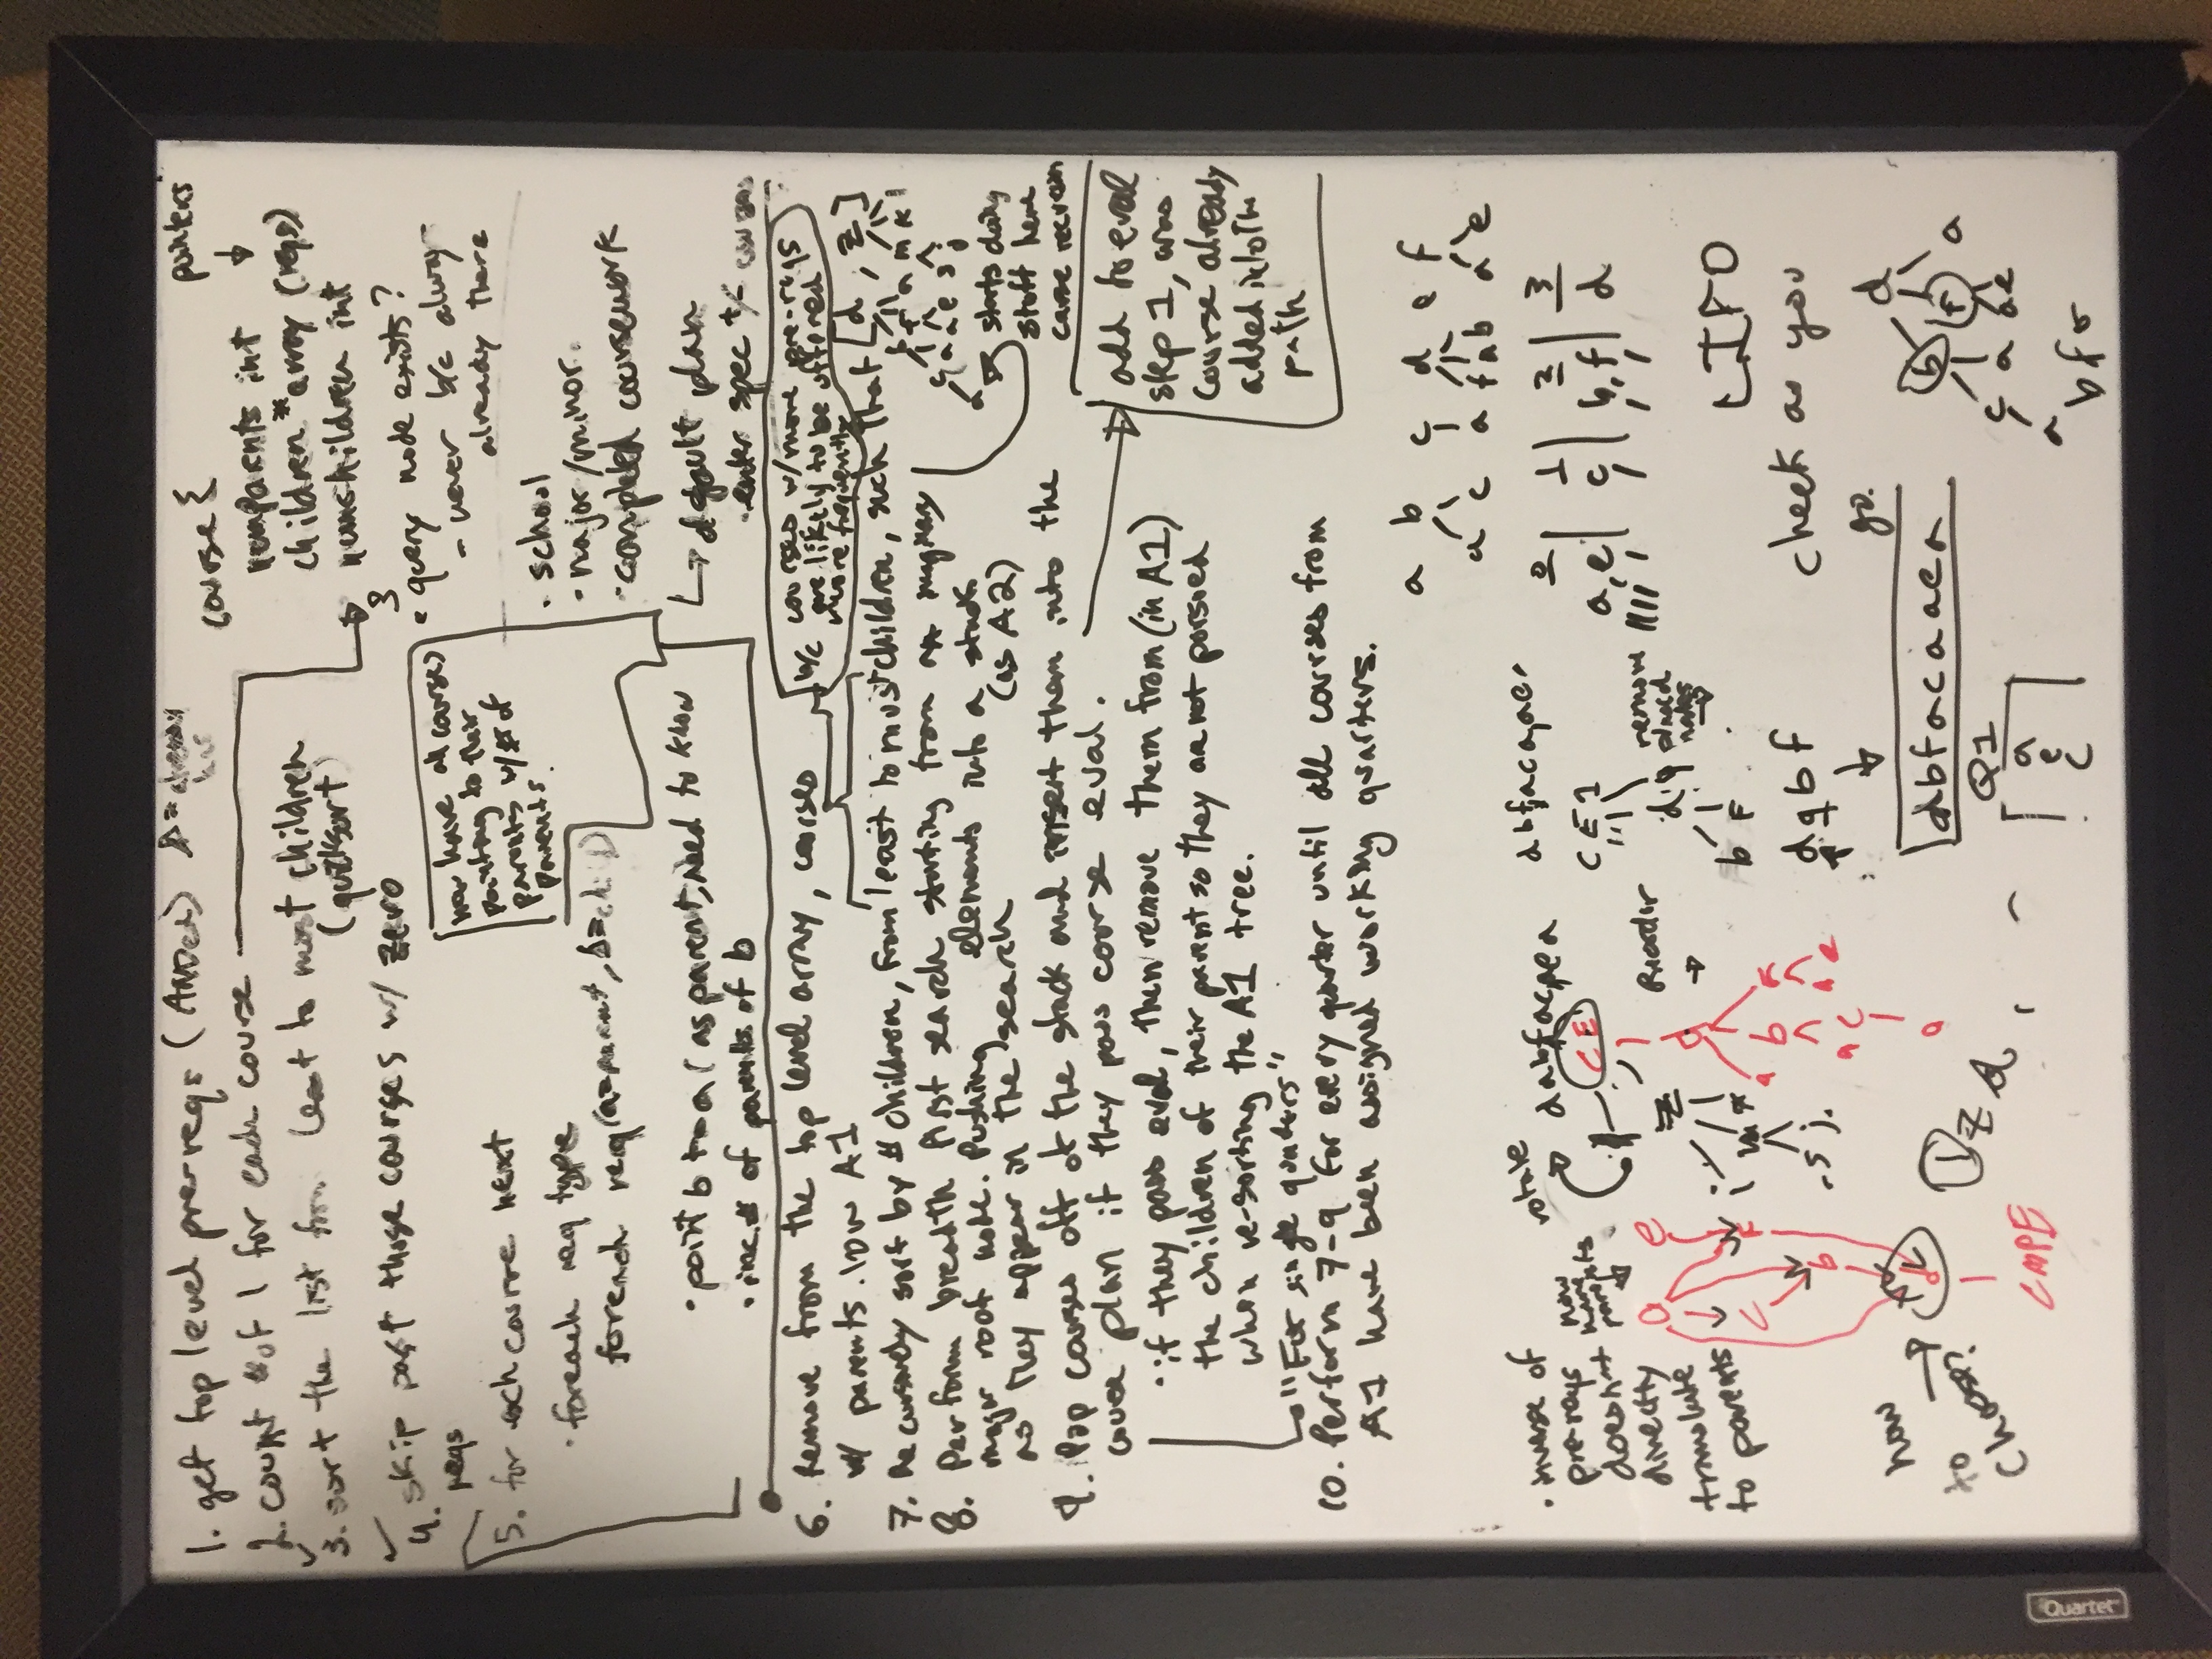 1. get top level prereqs (ANDed)
2. count # of 1 for each course
3. sort the list from least to most children
(quicksort)
4. skip past those courses w/ zero
reqs
5. for each course next
· foreach req type
foreach req (a=parent, b=child)
· point b to a (as parent, need to know
· inc. # of parents of b
course {
pointers
numparents int
children * array (reqs)
numchildren int
}
· query node exists?
- never b/c always
already there
now have all courses
pointing to their
parents w/ # of
parents.
· school
· major/minor
· completed coursework
default plan
· enter spec
b/c courses w/ more pre-reqs
are likely to be offered
more frequently
6. Remove from the top level array, courses
w/ parents. now A1
7. Recursively sort by # children, from least to most children, such that [d, z]
8. Perform breadth first search starting from
major root node. Pushing elements into a stack
as they appear in the search (as A2)
starts doing
stuff here
9. Pop courses off of the stack and insert them into the
course plan if they pass course eval.
· if they pass eval, then remove them from (in A1)
the children of their parent so they are not parsed
when re-sorting the A1 tree.
"For single quarters"
add to eval
step 1, was
course already
added into the
path
10. Perform 7-9 for every quarter until all courses from
A1 have been assigned working quarters.
a b c d e f
a c a f a b a e
0 1 2 3
a, e c b, f d
LIFO
check as you
go.
· inverse of
pre-reqs
doesn't
directly
translate
to parents
now
have
parents
rotate
CE
Reorder
CE1
remove
placed
nodes
d
b f
dbfacaaea
Q1
a
e
c
d
b f a
c a a e
a
bfs
how
to
choose?
CMPE
1
z d
Quartet